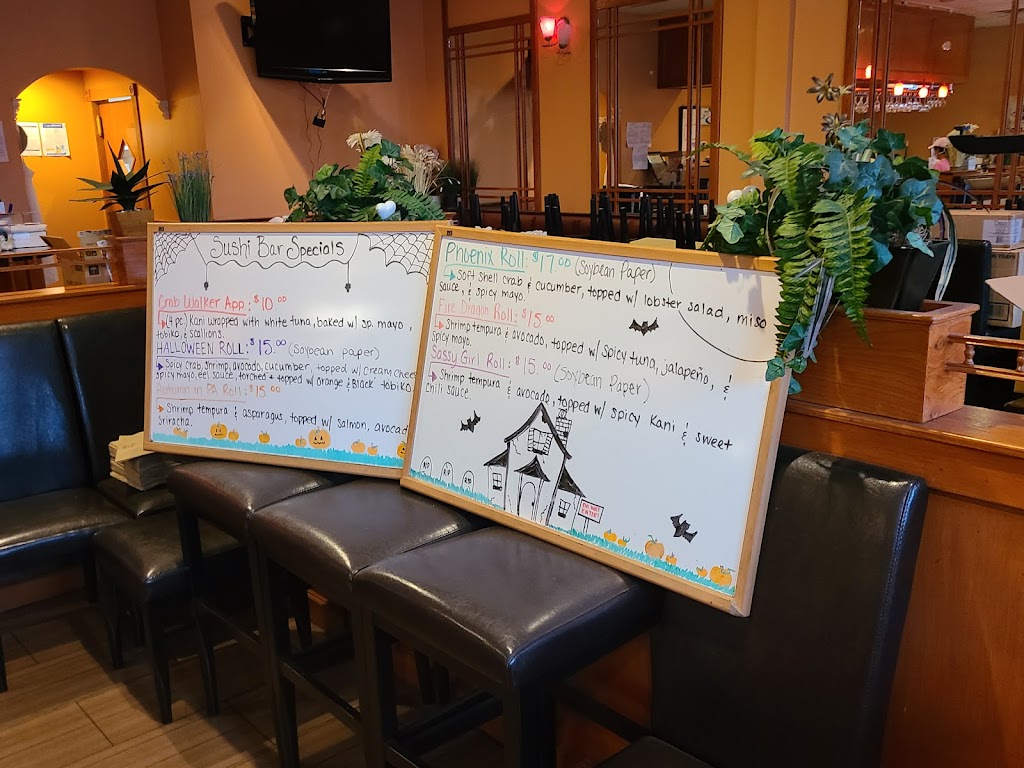 Sushi Bar Specials
Crab Walker App: $10.00
(4 pc.) Kani wrapped with white tuna, baked w/ sp. mayo,
tobiko, & scallions.
HALLOWEEN ROLL: $15.00 (Soybean paper)
Spicy crab, shrimp, avocado, cucumber, topped w/ cream chees
spicy mayo, eel sauce, torched & topped w/ orange & Black tobiko
Autumn in PA Roll: $15.00
Shrimp tempura & asparagus, topped w/ salmon, avocad
Sriracha.
Phoenix Roll: $17.00 (Soybean Paper)
Soft shell crab & cucumber, topped w/ lobster salad, miso
sauce, & spicy mayo.
Fire Dragon Roll: $15.00
Shrimp tempura & avocado, topped w/ spicy tuna, jalapeño, &
spicy mayo.
Sassy Girl Roll: $15.00 (Soybean Paper)
Shrimp tempura & avocado, topped w/ spicy Kani & sweet
chili sauce.
RIP
RIP
RIP
DO NOT
ENTER!